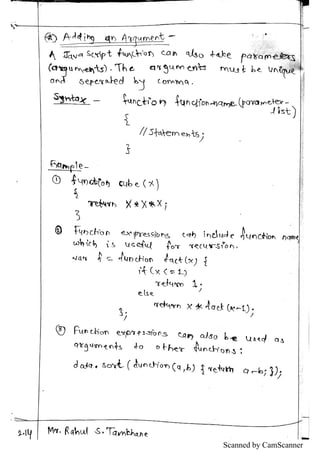 (a) Adding an Argument -
A Java Script function can also take parameters
(arguments). The arguments must be unique
and seperated by comma.
Syntax - function function-name (parameter-
list)
{
// Statements;
}
Example -
① function cube (x)
{
return x * x * x;
}
② Function expressions can include function name
which is useful for recursion.
var f = function fact (x) {
if (x <= 1)
return 1;
else
return x * fact (x-1);
};
③ Function expressions can also be used as
arguments to other functions :
data. sort ( function (a,b) { return a-b; });
2.14 Mr. Rahul S. Tamkhane
Scanned by CamScanner